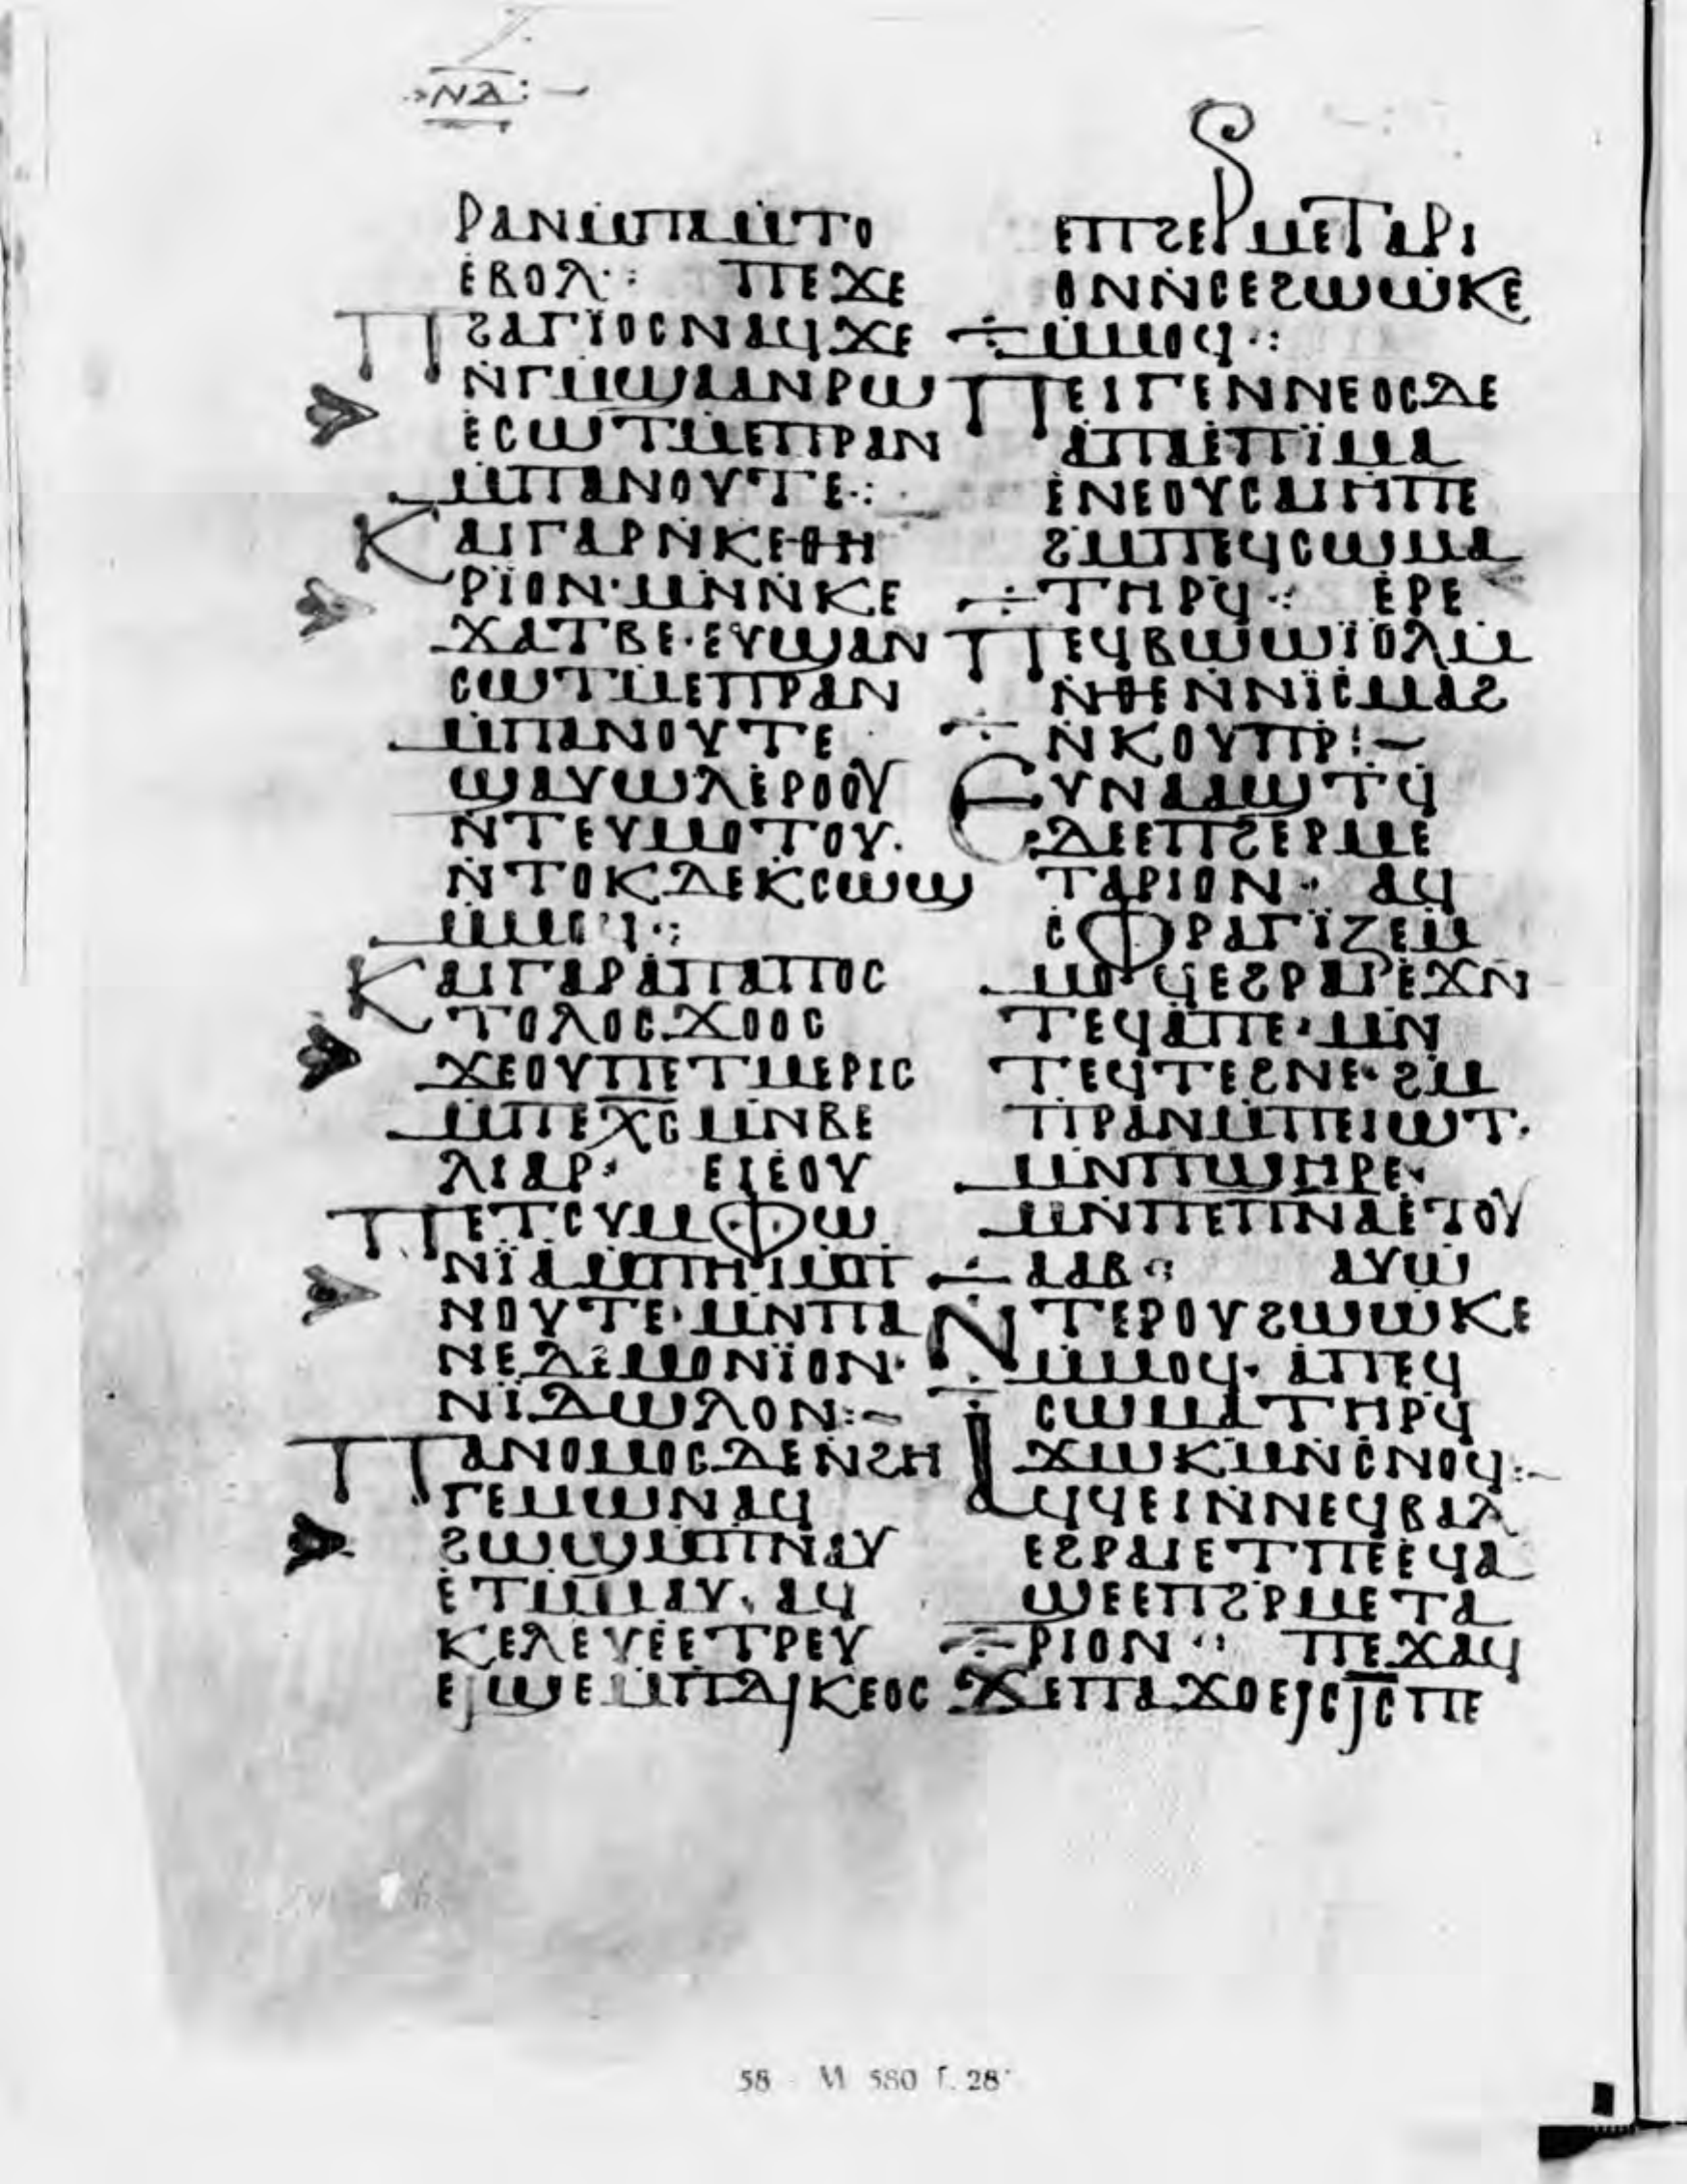 ⲛⲁ:—
ⲣⲁⲛⲙ̇ⲡⲁⲙ̇ⲧⲟ
ⲉ̇ⲃⲟⲗ·: ⲡⲉϫⲉ
ⲡϩⲁⲅⲓ̈ⲟⲥⲛⲁϥϫⲉ
ⲛ̇ⲅⲙ̇ϣⲁⲁⲛⲣⲱ
ⲉ̇ⲥⲱⲧⲙ̇ⲉⲡⲣⲁⲛ
ⲙ̇ⲡⲁⲛⲟⲩⲧⲉ·:
ⲕⲁⲓⲅⲁⲣⲛ̇ⲕⲉⲑⲏ
ⲣⲓ̈ⲟⲛ·ⲙⲛ̇ⲛ̇ⲕⲉ
ϫⲁⲧⲃⲉ·ⲉⲩϣⲁⲛ
ⲥⲱⲧⲙ̇ⲉⲡⲣⲁⲛ
ⲙ̇ⲡⲁⲛⲟⲩⲧⲉ·
ϣⲁⲩⲱⲗⲉ̇ⲣⲟⲟⲩ
ⲛ̇ⲧⲉⲩⲙⲟⲧⲟⲩ·
ⲛ̇ⲧⲟⲕⲇⲉⲕⲥⲱϣ
ⲙ̇ⲙⲟϥ·:
ⲕⲁⲓⲅⲁⲣⲁ̇ⲡⲁⲡⲟⲥ
ⲧⲟⲗⲟⲥϫⲟⲟⲥ
ϫⲉⲟⲩⲡⲉⲧⲙⲉⲣⲓⲥ
ⲙ̇ⲡⲉⲭ̅ⲥ̅ⲙⲛ̇ⲃⲉ
ⲗⲓⲁⲣ· ⲉⲓⲉ̇ⲟⲩ
ⲡⲉⲧⲥⲩⲙⲫⲱ
ⲛⲓ̈ⲁⲙ̇ⲡⲏⲓ̈ⲙ̇ⲡ
ⲛⲟⲩⲧⲉ·ⲙⲛ̇ⲡⲁ
ⲛⲉⲇⲉⲙⲟⲛⲓ̈ⲟⲛ·
ⲛⲓ̈ⲇⲱⲗⲟⲛ:–
ⲡⲁⲛⲟⲙⲟⲥⲇⲉⲛ̇ϩⲏ
ⲅⲉⲙⲱⲛⲁϥ
ϩⲱϣⲙ̇ⲡⲛⲁⲩ
ⲉ̇ⲧⲙ̇ⲙⲁⲩ·ⲁϥ
ⲕⲉⲗⲉⲩⲉ̇ⲉⲧⲣⲉⲩ
ⲉⲓϣⲉⲙ̇ⲡⲇⲓⲕⲉⲟⲥ
ⲉⲡϩⲉⲣⲙⲉⲧⲁⲣⲓ
ⲟⲛⲛ̇ⲥⲉϩⲱⲱⲕⲉ
ⲙ̇ⲙⲟϥ·:
ⲡⲉⲓⲅⲉⲛⲛⲉⲟⲥⲇⲉ
ⲁ̇ⲡⲁⲉ̇ⲡⲓ̈ⲙⲁ
ⲉ̇ⲛⲉⲟⲩⲥⲁⲓⲏⲡⲉ
ϩⲙ̇ⲡⲉϥⲥⲱⲙⲁ
ⲧⲏⲣϥ·: ⲉ̇ⲣⲉ
ⲡⲉϥⲃⲱⲱⲓ̈ⲟⲗⲙ̇
ⲛ̇ⲑⲉⲛ̇ⲛⲓ̈ⲥⲙⲁϩ
ⲛ̇ⲕⲟⲩⲡⲣ:–
ⲉⲩⲛⲁⲁϣⲧϥ
ⲇⲉⲉⲡϩⲉⲣⲙⲉ
ⲧⲁⲣⲓⲟⲛ· ⲁϥ
ⲥⲫⲣⲁⲅⲓ̈ⲍⲉⲙ̇
ⲙⲟϥⲉϩⲣⲁⲓ̈ⲉ̇ϫⲛ̇
ⲧⲉϥⲁ̇ⲡⲉ·ⲙⲛ̇
ⲧⲉϥⲧⲉϩⲛⲉ·ϩⲙ̇
ⲡⲣⲁⲛⲙ̇ⲡⲉⲓⲱⲧ·
ⲙⲛ̇ⲡϣⲏⲣⲉ·
ⲙⲛ̇ⲡⲉⲡⲛⲁⲉ̇ⲧⲟⲩ
ⲁⲁⲃ·: ⲁⲩⲱ̇
ⲛ̇ⲧⲉⲣⲟⲩϩⲱⲱⲕⲉ
ⲙ̇ⲙⲟϥ·ⲁ̇ⲡⲉϥ
ⲥⲱⲙⲁⲧⲏⲣϥ
ϫⲱⲕⲙⲛ̇ⲥ̇ⲛⲟϥ:–
ⲁϥϥⲉⲓⲛ̇ⲛⲉϥⲃⲁⲗ
ⲉϩⲣⲁⲓⲉⲧⲡⲉⲉ̇ϥⲁ
ϣⲉⲉⲡϩⲣⲙⲉⲧⲁ
ⲣⲓⲟⲛ·: ⲡⲉϫⲁϥ
ϫⲉⲡⲁϫⲟⲉⲓⲥⲓ̅ⲥ̅ⲡⲉ
58 M 580 f. 28